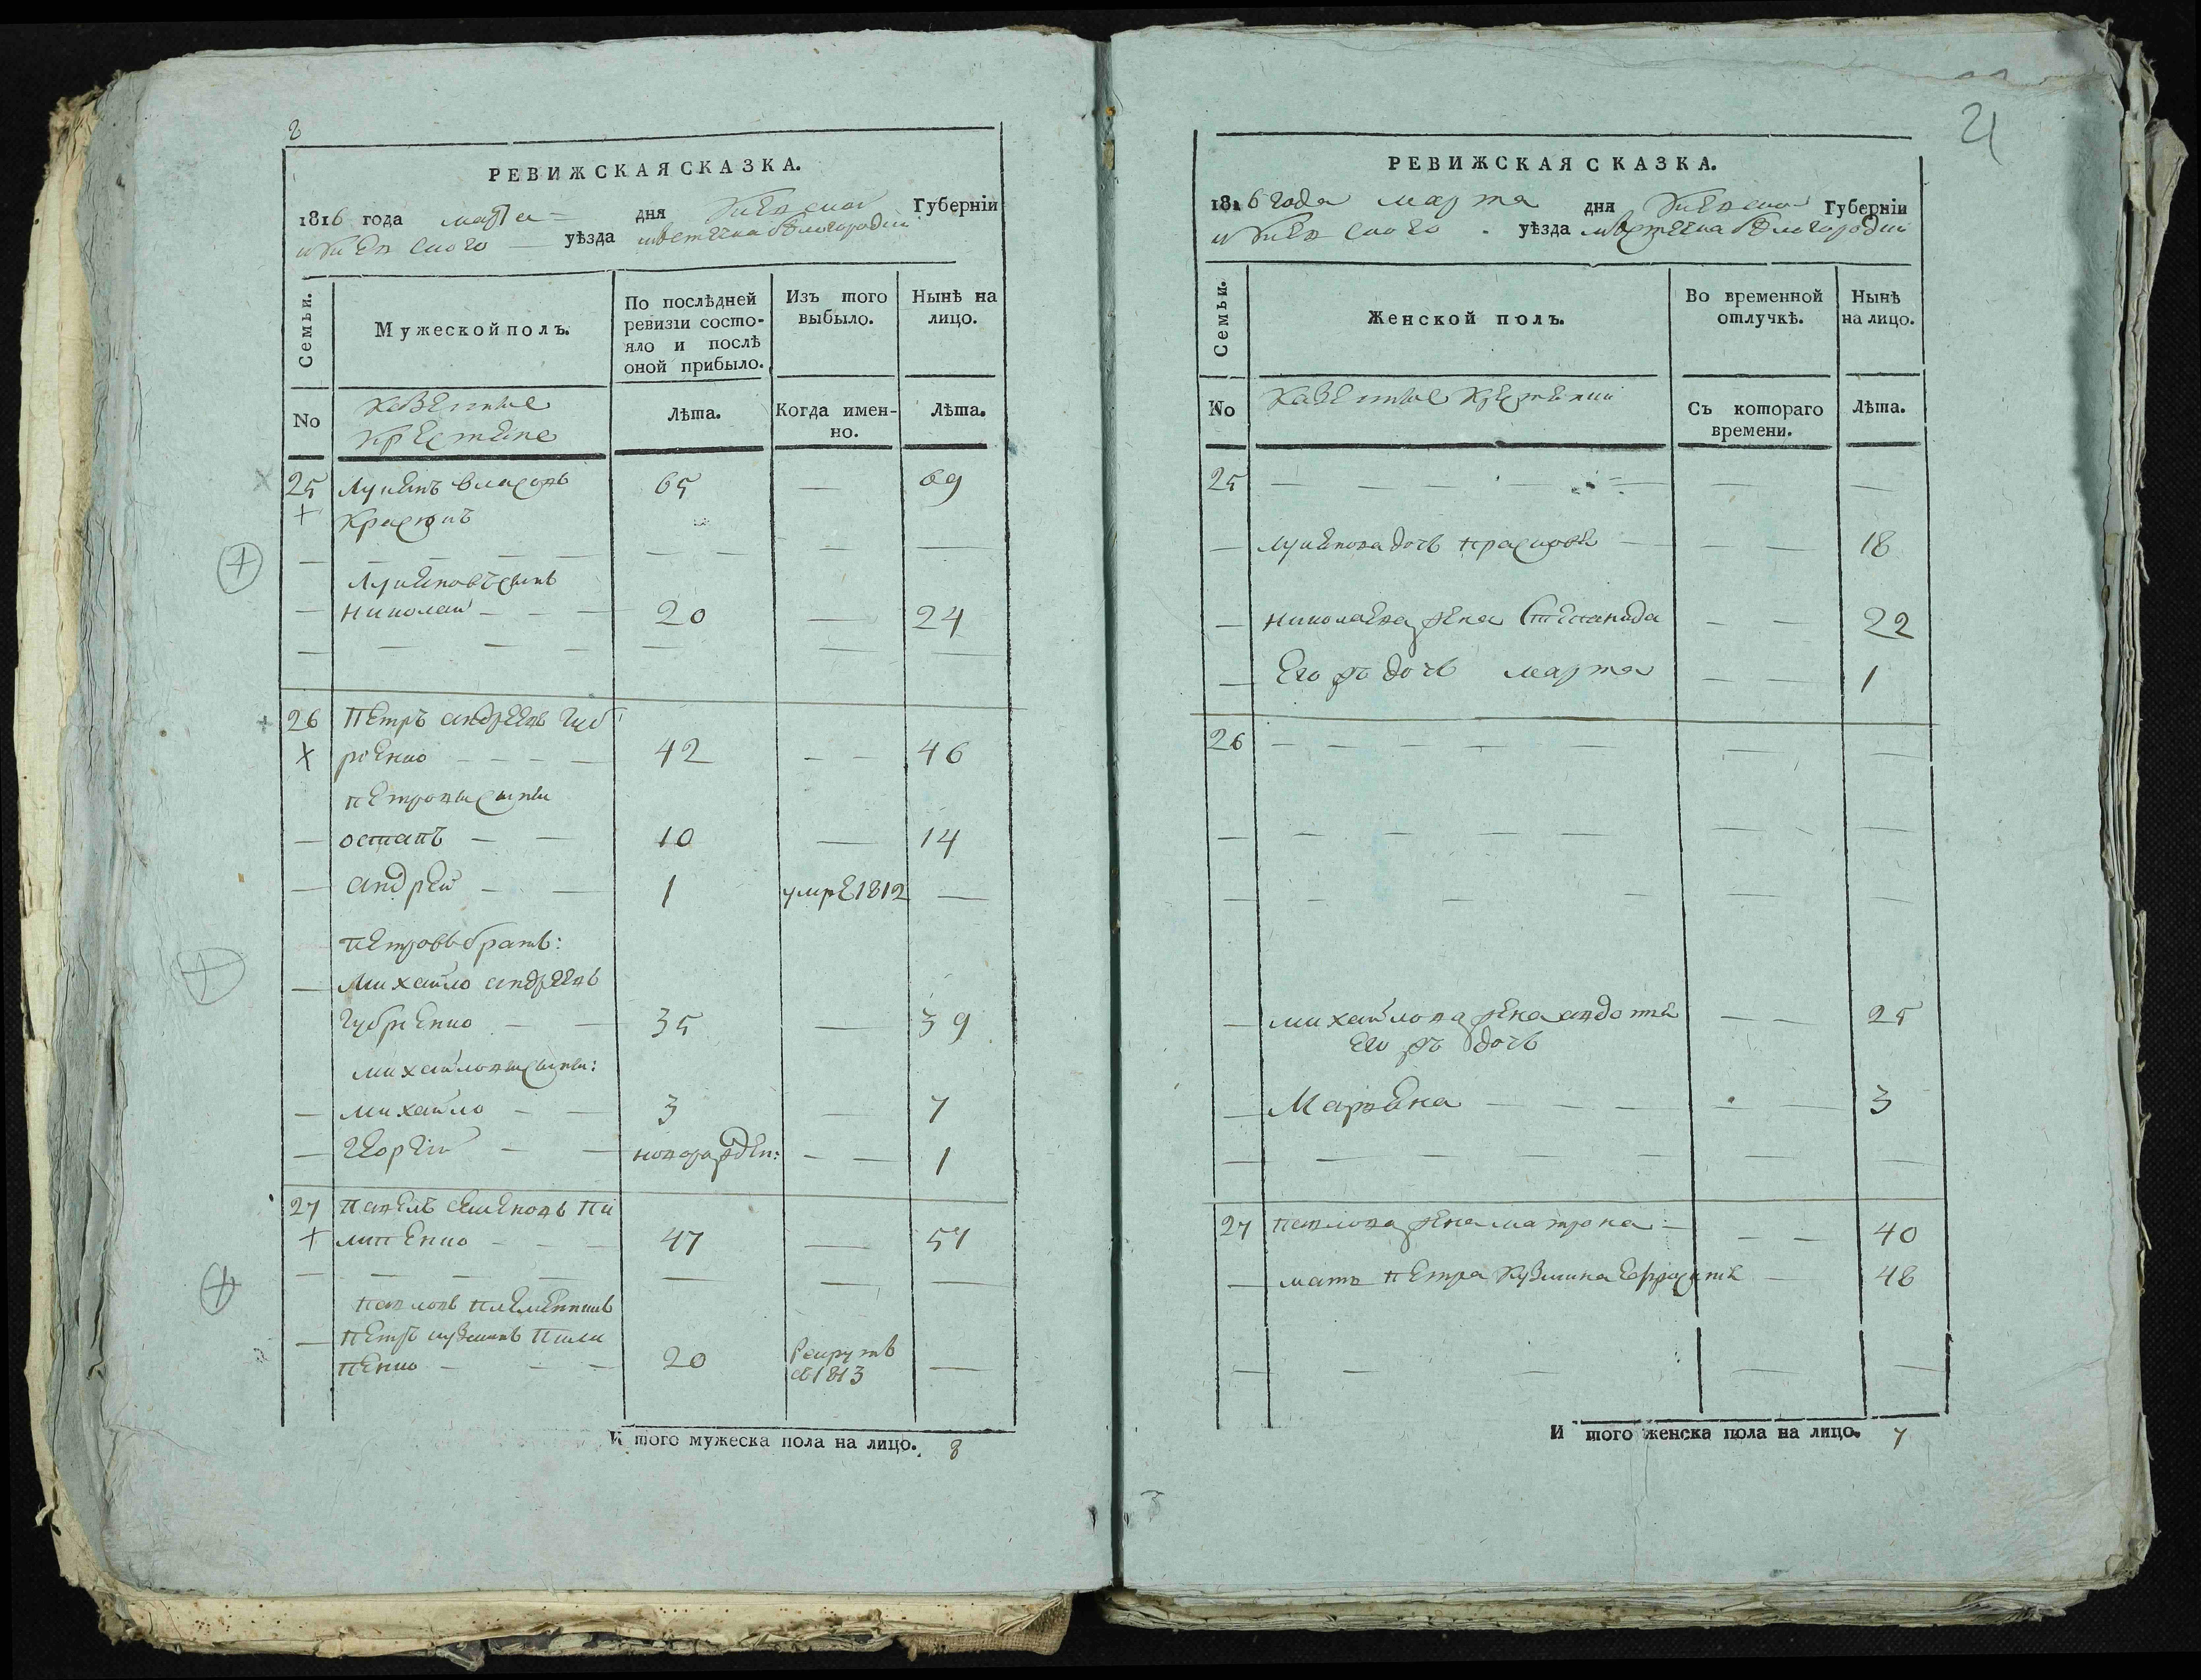 2
РЕВИЖСКАЯ СКАЗКА.
1816 года марта дня Киевской Губерніи
и Киевского уѣзда местечка Белогородки
Семьи. Мужеской полъ. По послѣдней ревизіи состояло и послѣ оной прибыло. Изъ того выбыло. Нынѣ на лицо.
No Казенные Лѣта. Когда именно. Лѣта.
крестяне
25 Лукянъ Власовъ 65 — 69
Красюкъ
Лукяновъ сынъ
Николай 20 — 24
26 Петръ Андреевъ Губ
риенко 42 — — 46
Петровы сыны
Остапъ 10 — 14
Андрей 1 умре 1812 —
Петровъ братъ:
Михайло Андреевъ
Губриенко 35 — 39
Михайловы сыны:
Михайло 3 — 7
Георгий новорожден: — — 1
27 Павелъ Семеновъ Пи
липенко 47 — 51
Павловъ племенникъ
Петръ Кузминъ Пили
пенко 20 Рекрутъ —
въ 1813
И того мужеска пола на лицо. 8
21
РЕВИЖСКАЯ СКАЗКА.
1816 года марта дня Киевской Губерніи
и Киевского уѣзда местечка Белогородки
Семьи. Женской полъ. Во временной отлучкѣ. Нынѣ на лицо.
No Казенные крестянки Съ котораго времени. Лѣта.
25
— Лукянова дочь — — 18
— Николаева жена Степанида — — 22
— Его жъ дочь Марта — — 1
26
— Михайлова жена Авдотя — — 25
Его жъ дочь
— Марьяна — 3
27 Павлова жена Матрона — — 40
— мать Петра Кузмина — 48
И того женска пола на лицо. 7